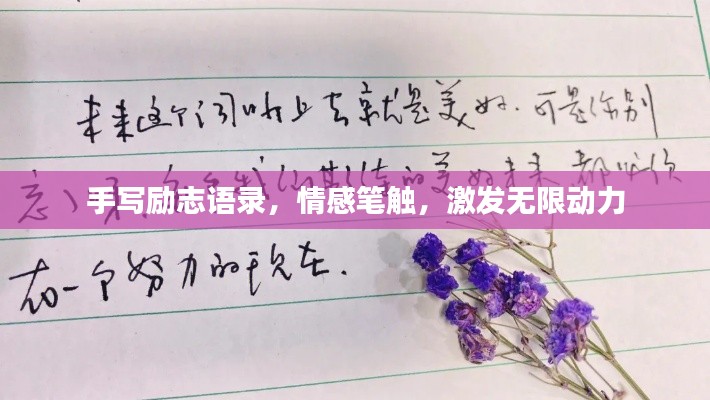 未来这个词听上去就是美好.可是你别
忘 的美好未来 都必须
手写励志语录，情感笔触，激发无限动力
有一个努力的现在.